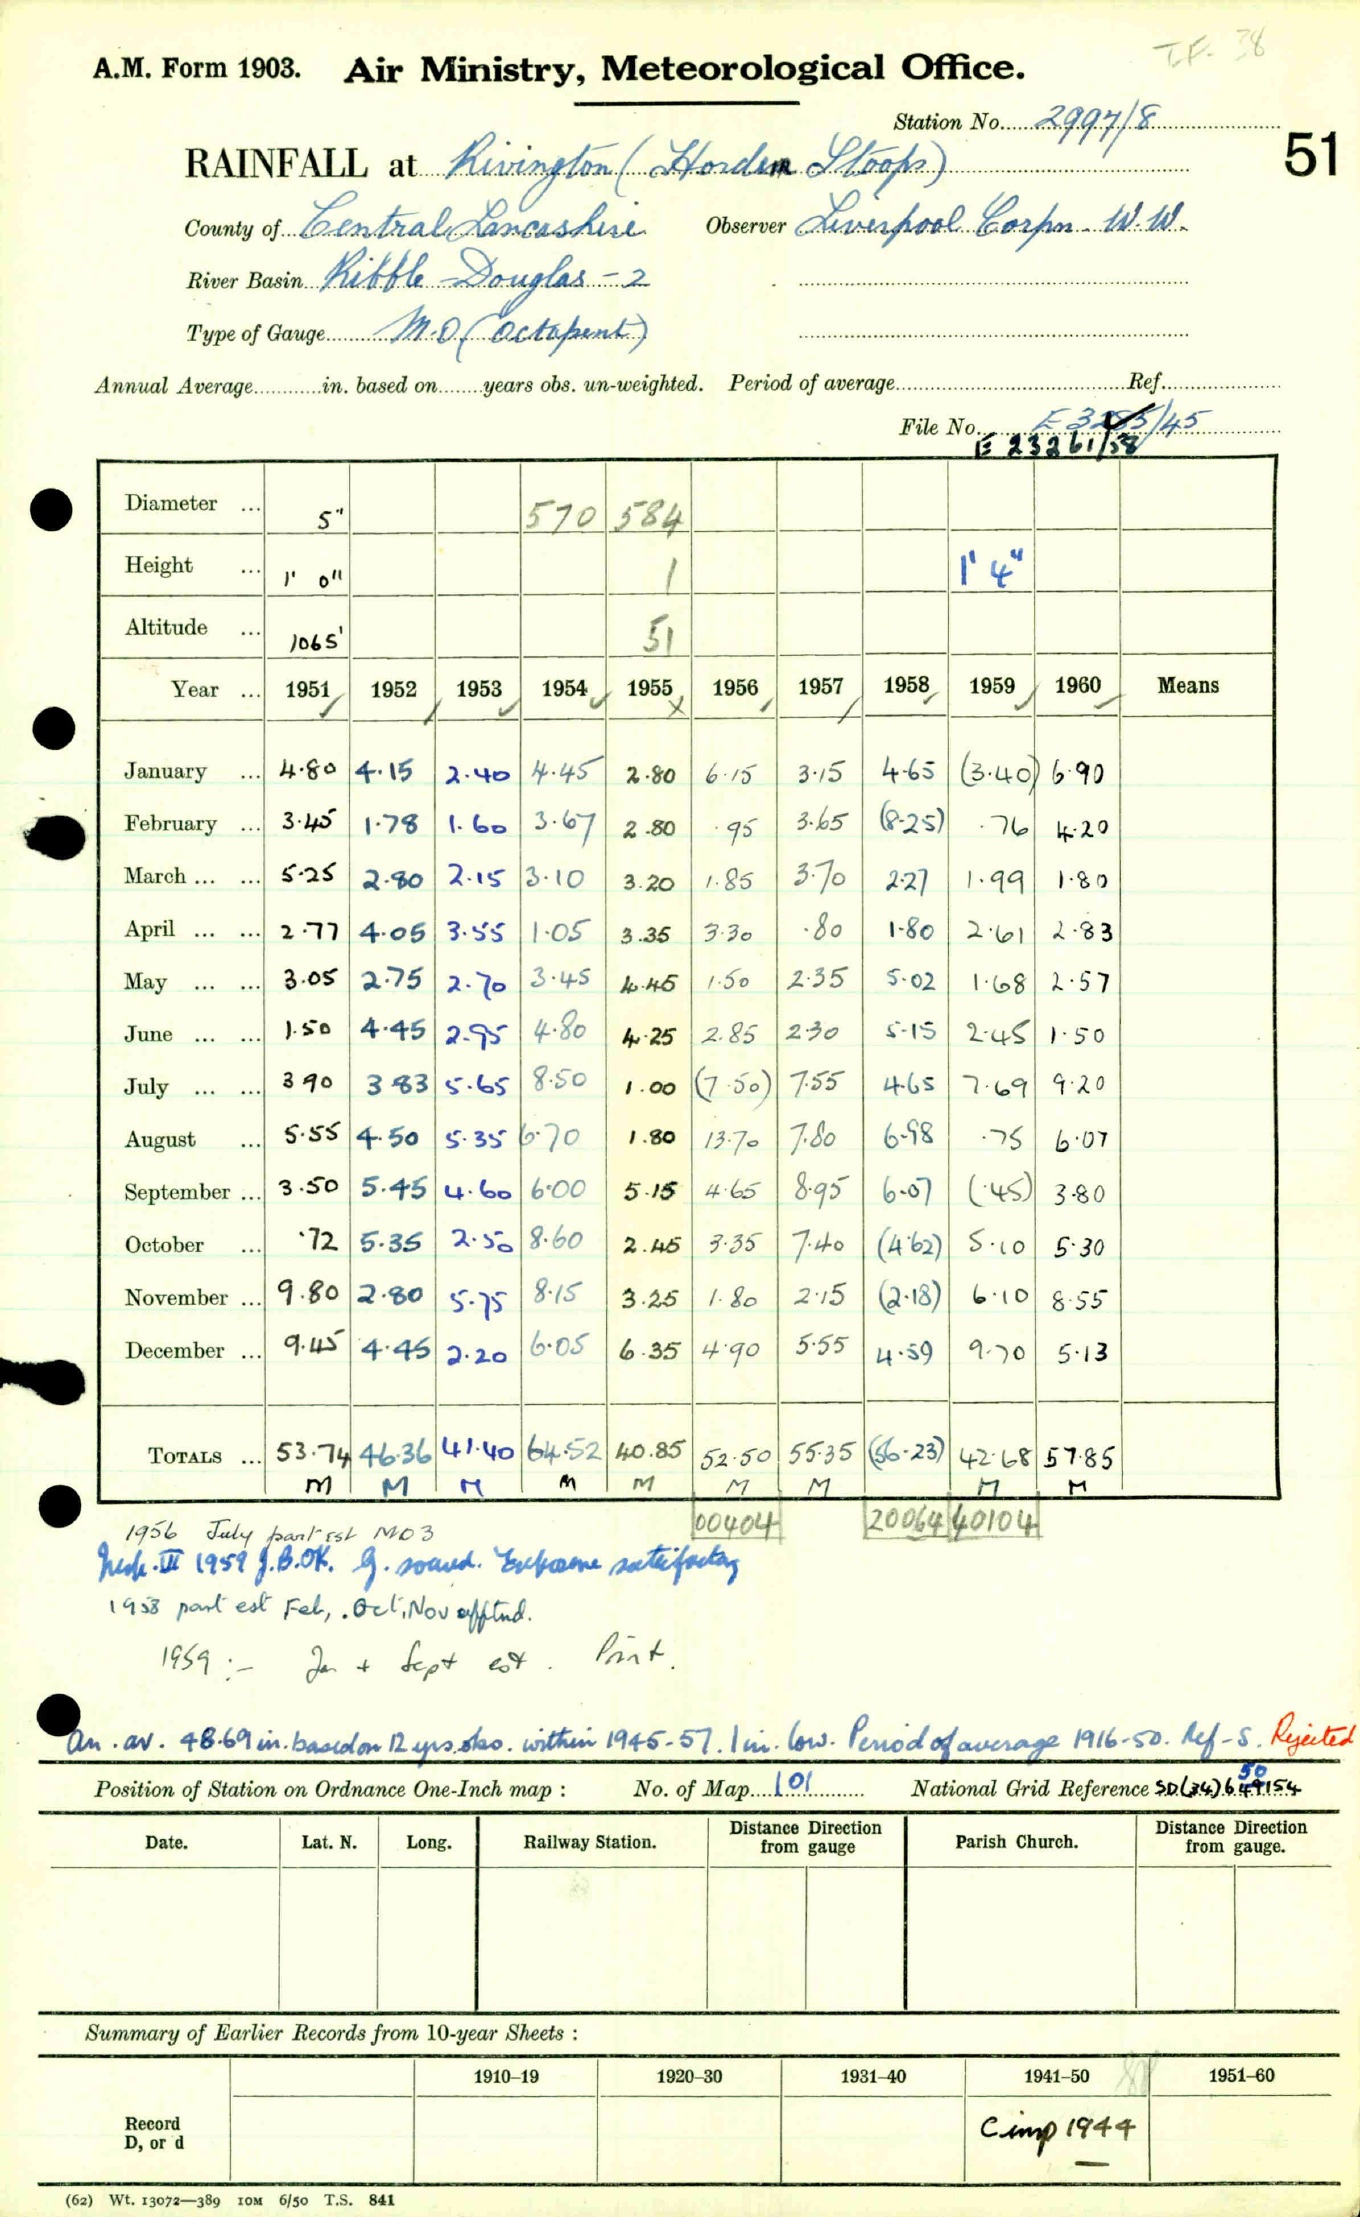 T.F. 38
A.M. Form 1903. Air Ministry, Meteorological Office.
Station No. 2997/8
51
RAINFALL at Rivington (Horden Stoops)
County of Central Lancashire Observer Liverpool Corpn. W.W.
River Basin Ribble-Douglas-2
Type of Gauge M.O (Octapent)
Annual Average in. based on years obs. un-weighted. Period of average Ref.
File No. E 3285/45
E 23261/58
Diameter ... 5" 570 584
Height ... 1' 0" 1 1' 4"
Altitude ... 1065' 51
Year ... 1951 1952 1953 1954 1955 1956 1957 1958 1959 1960 Means
January ... 4.80 4.15 2.40 4.45 2.80 6.15 3.15 4.65 (3.40) 6.90
February ... 3.45 1.78 1.60 3.67 2.80 .95 3.65 (8.25) .76 4.20
March ... ... 5.25 2.80 2.15 3.10 3.20 1.85 3.70 2.27 1.99 1.80
April ... ... 2.77 4.05 3.55 1.05 3.35 3.30 .80 1.80 2.61 2.83
May ... ... 3.05 2.75 2.70 3.45 4.45 1.50 2.35 5.02 1.68 2.57
June ... ... 1.50 4.45 2.95 4.80 4.25 2.85 2.30 5.15 2.45 1.50
July ... ... 3 90 3 83 5.65 8.50 1.00 (7.50) 7.55 4.65 7.69 9.20
August ... 5.55 4.50 5.35 6.70 1.80 13.70 7.80 6.98 .75 6.07
September ... 3.50 5.45 4.60 6.00 5.15 4.65 8.95 6.07 (.45) 3.80
October ... .72 5.35 2.50 8.60 2.45 3.35 7.40 (4.62) 5.10 5.30
November ... 9.80 2.80 5.75 8.15 3.25 1.80 2.15 (2.18) 6.10 8.55
December ... 9.45 4.45 2.20 6.05 6.35 4.90 5.55 4.59 9.70 5.13
TOTALS ... 53.74 46.36 41.40 64.52 40.85 52.50 55.35 (56.23) 42.68 57.85
M M M M M M M M M
00404 20064 40104
1956 July part est MO3
Insp. III 1959 J.B.OK. G. sound. Exposure satisfactory
1958 part est Feb, Oct, Nov apptnd.
1959 :- Jan + Sept est. Print.
An. av. 48.69 in. based on 12 yrs. obs. within 1945-57. 1 in. low. Period of average 1916-50. Ref-S. Rejected
Position of Station on Ordnance One-Inch map : No. of Map 101 National Grid Reference SD(34)649154
50
Date. Lat. N. Long. Railway Station. Distance Direction from gauge Parish Church. Distance Direction from gauge.
Summary of Earlier Records from 10-year Sheets :
1910–19 1920–30 1931–40 1941–50 1951–60
Record
D, or d
C imp 1944
(62) Wt. 13072—389 10M 6/50 T.S. 841